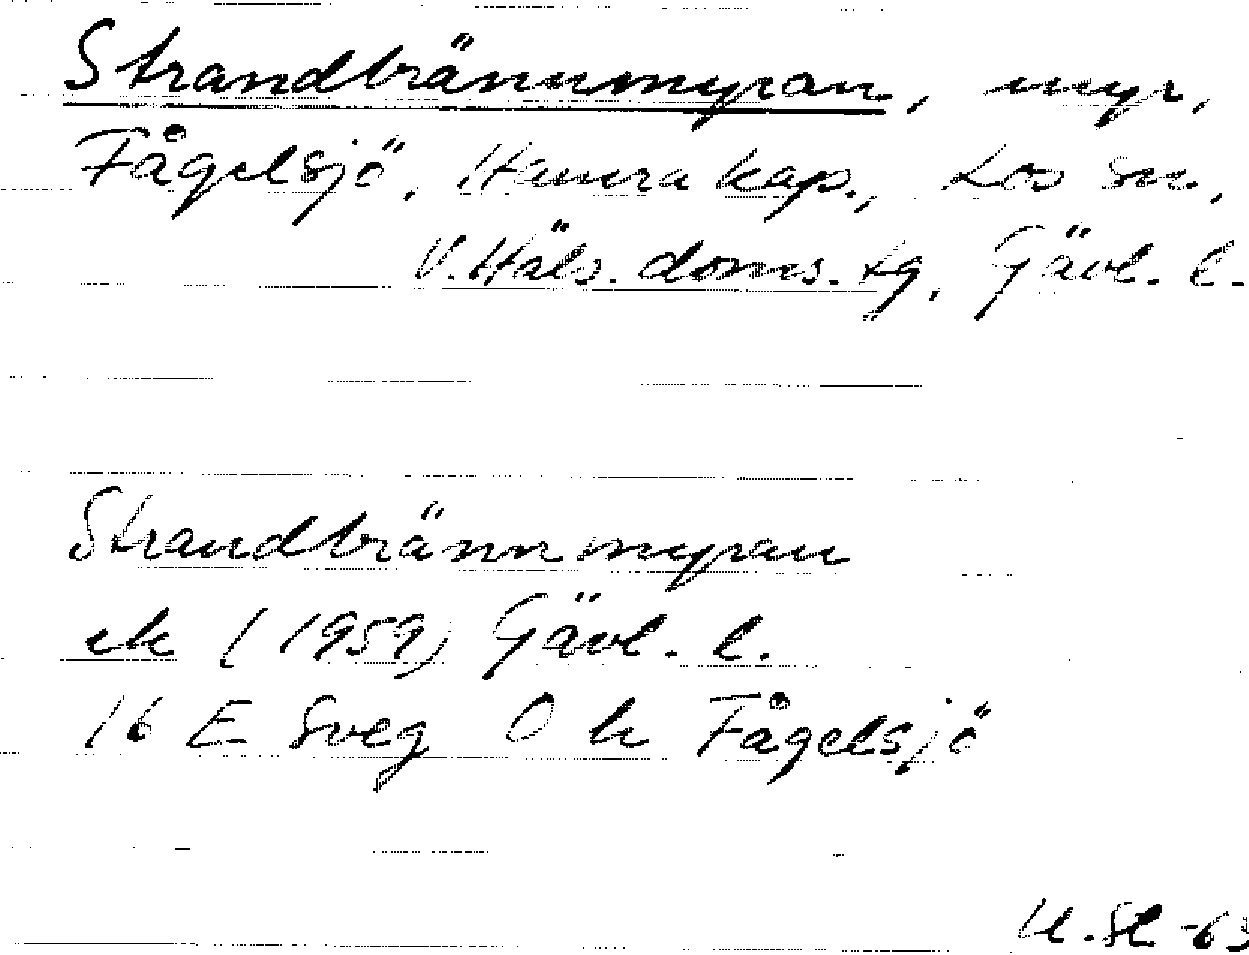 Strandbrännmyran, myr,
Fågelsjö, Hamra kap., Los sn,
V. Häls. doms. tg, Gävl. l.
Strandbrännmyran
ek (1959) Gävl. l.
16 E Sveg 0 h Fågelsjö
-63